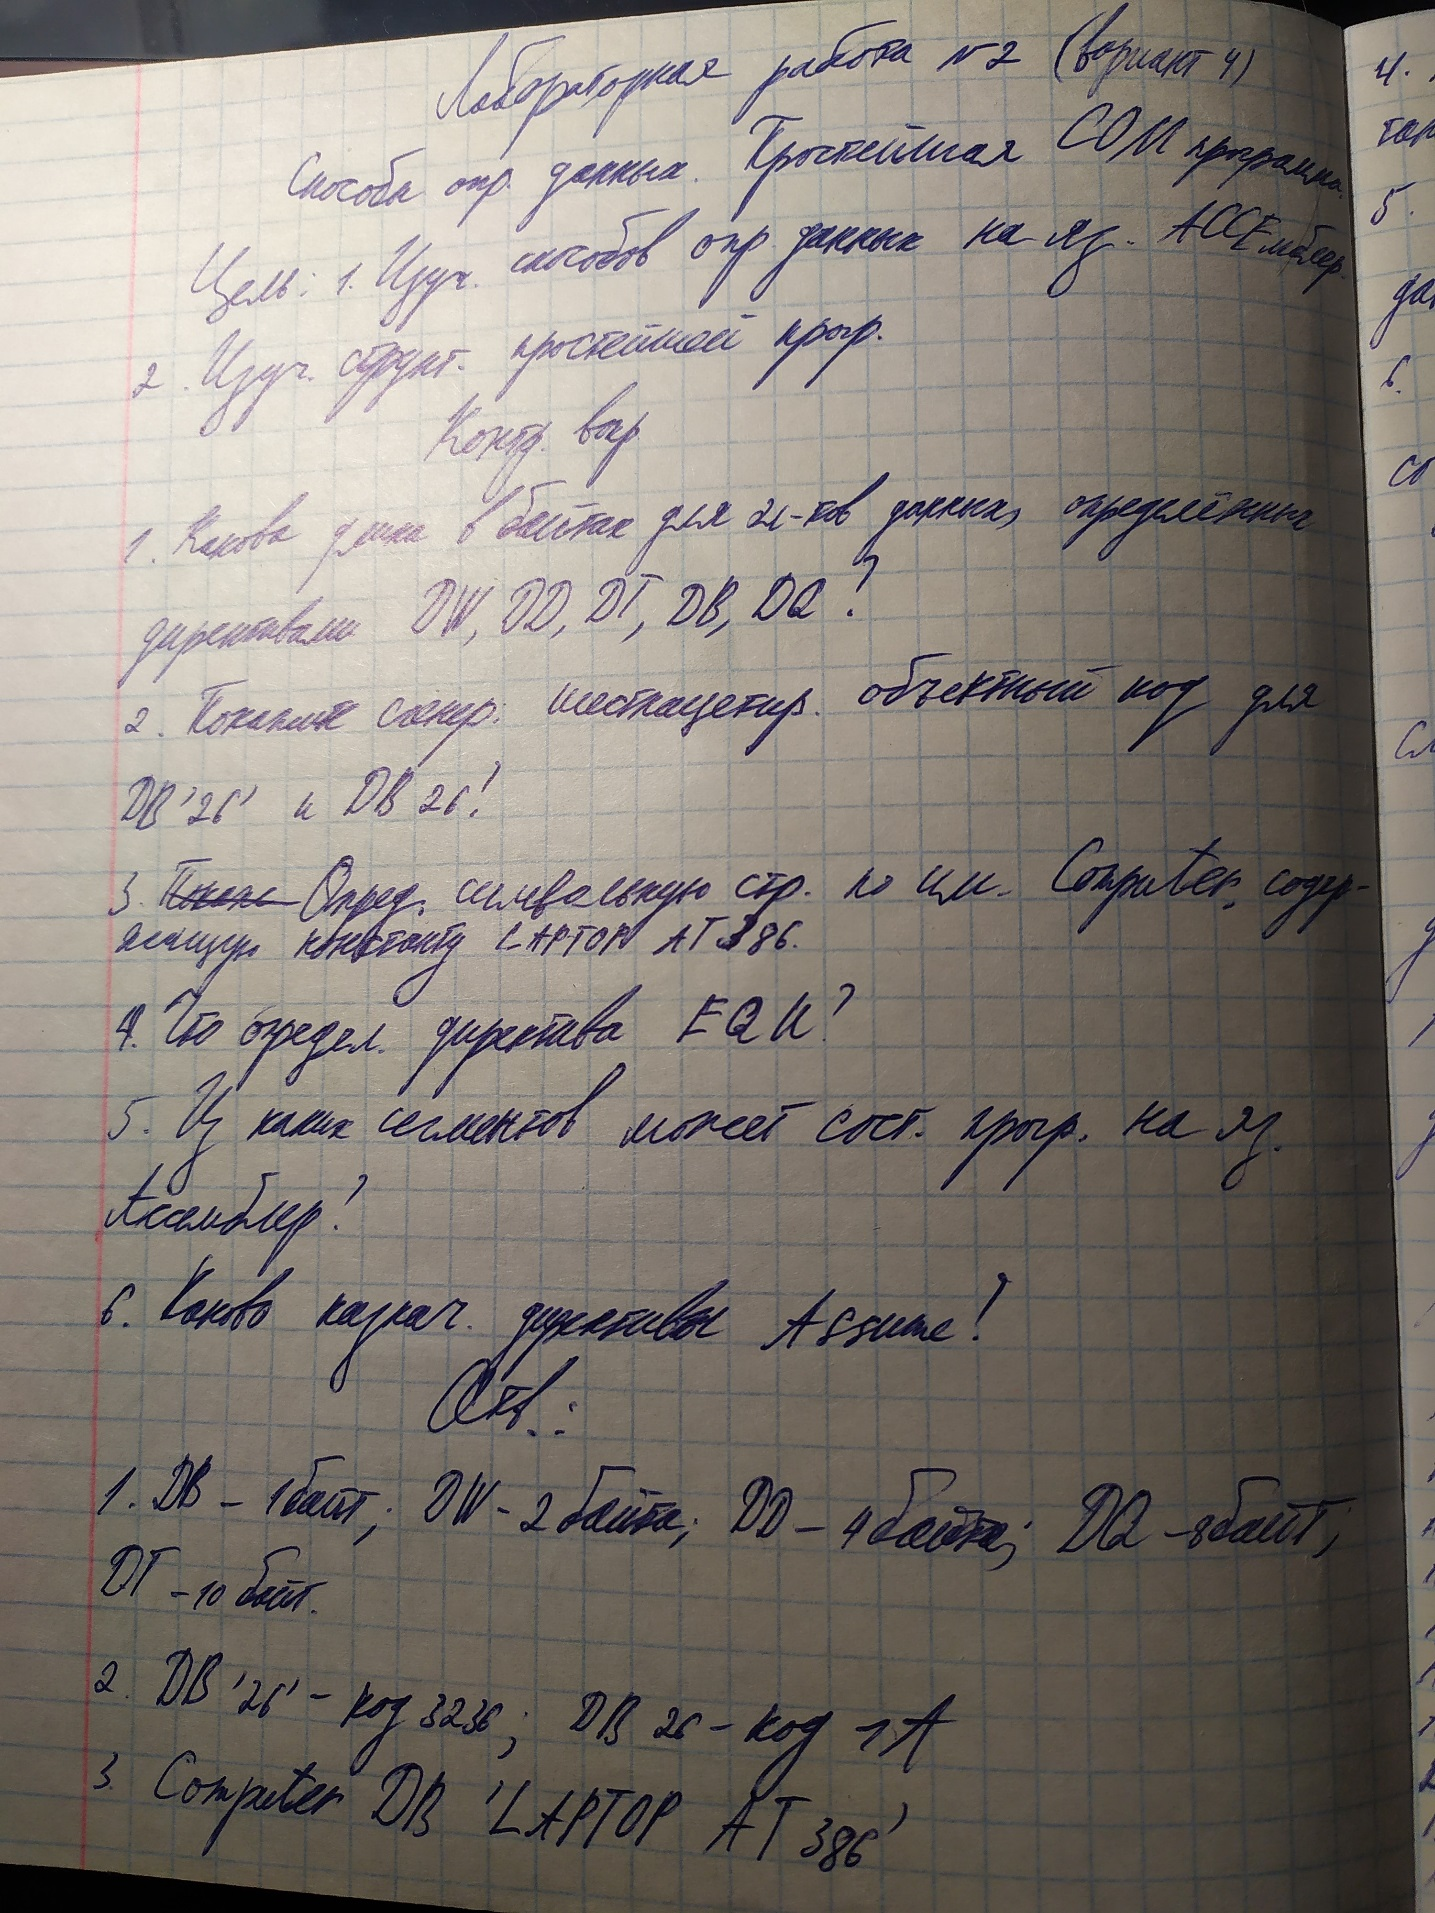 Лабораторная работа №2 (вариант 4)
Способы опр. данных. Простейшая COM программа.
Цель: 1. Изуч. способов опр. данных на яз. АССЕмблер.
2. Изуч. структ. простейшей прогр.
Контр. вопр
1. Какова длина в байтах для эл-тов данных, определённых
директивами DW, DD, DT, DB, DQ?
2. сгенер. шестнадцатир. объектный код для
DB '26' и DB 26?
3. Опред. символьную стр. по им. Computer, содер-
жащую константу LAPTOP AT 386.
4. Что определ. директива EQU?
5. Из каких сегментов может сост. прогр. на яз.
Ассемблер?
6. Каково назнач. директивы Assume?
Отв.:
1. DB – 1 байт; DW – 2 байта; DD – 4 байта; DQ – 8 байт;
DT – 10 байт.
2. DB '26' – код 3236; DB 26 – код 1A
3. Computer DB 'LAPTOP AT 386'
4.
5.
6.